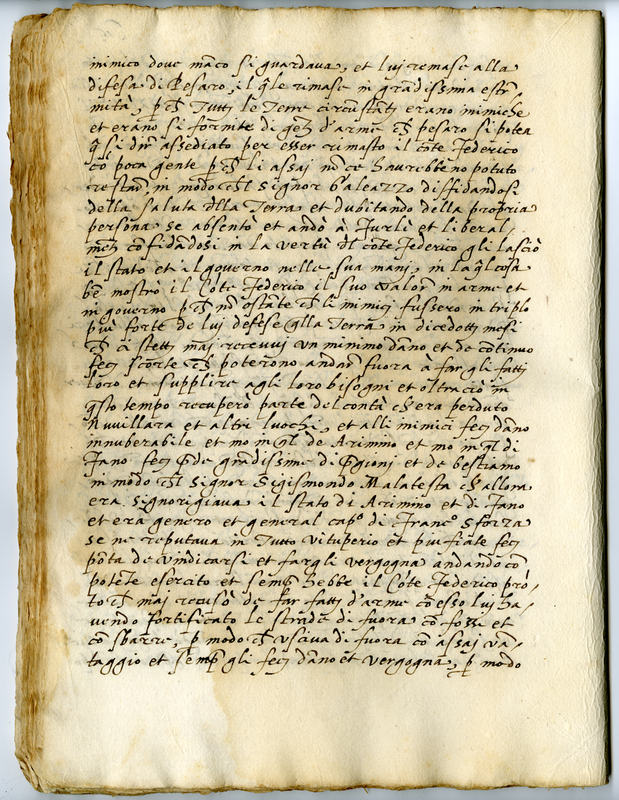 inimico dove māco si guardava, et lui remase alla
difesa di Pesaro, il qłe rimase in grādissima estrē,
mità, ꝑch̄ Tutti le Terre circūstati erano inimiche
et erano si fornite di gēti d'arme ch̄ pesaro si potea
q̄si dir assediato per esser rimasto il cōte Federico
cō poca gente ꝑch̄ li assai nō ce haurebbeno potuto
restar, in modo ch̄ l signor Galeazzo diffidandosi
della saluta dlla Terra et dubitando della propria
persona se absento et andò à Furlì et liberal,
mēte cōfidādosi in la vertù dl cōte Federico gli lasciò
il stato et il governo nelle sua mani, in la ql cosa
bē mostrò il Cōte Federico il suo valor in arme et
in governo ꝑch̄ nō ostāte ch̄ li inimici fussero in triplo
più forte de lui defese qlla Terra in dicedotti mesi
ch̄ ci stetti mai recevuj un minimo dāno et de cōtinuo
feci scorte ch̄ poterono andar fuora à far gli fatti
loro et supplire agli loro bisogni et oltraciò in
q̄sto tempo recuperò parte del contà ch'era perduto
Nuvillara et altri luochi, et alli inimici feci dāno
innuberabile et mo in ql de Arimino et mo in ql di
Fano feci p̄de grādissime di p̄gioni et de bestiamo
in modo ch̄ l signor Sigismondo Malatesta ch'allora
era signorigiava il stato di Arimino et di Fano
et era genero et general capº di Francº Sforza
se ne reputava in Tutto vituperio et più fiate feci
pōta de vindicarsi et fargli vergogna andando cō
potēte esercito et semp̄ hebbe il Cōte Federico prō,
to ch̄ mai recusò de far fatti d'arme cō esso lui ha,
vendo fortificato le strade di fuora cō fosse et
cō sbarre, ꝑ modo ch̄ usciva di fuora cō assai vā,
taggio et semp̄ gli feci dāno et vergogna, ꝑ modo